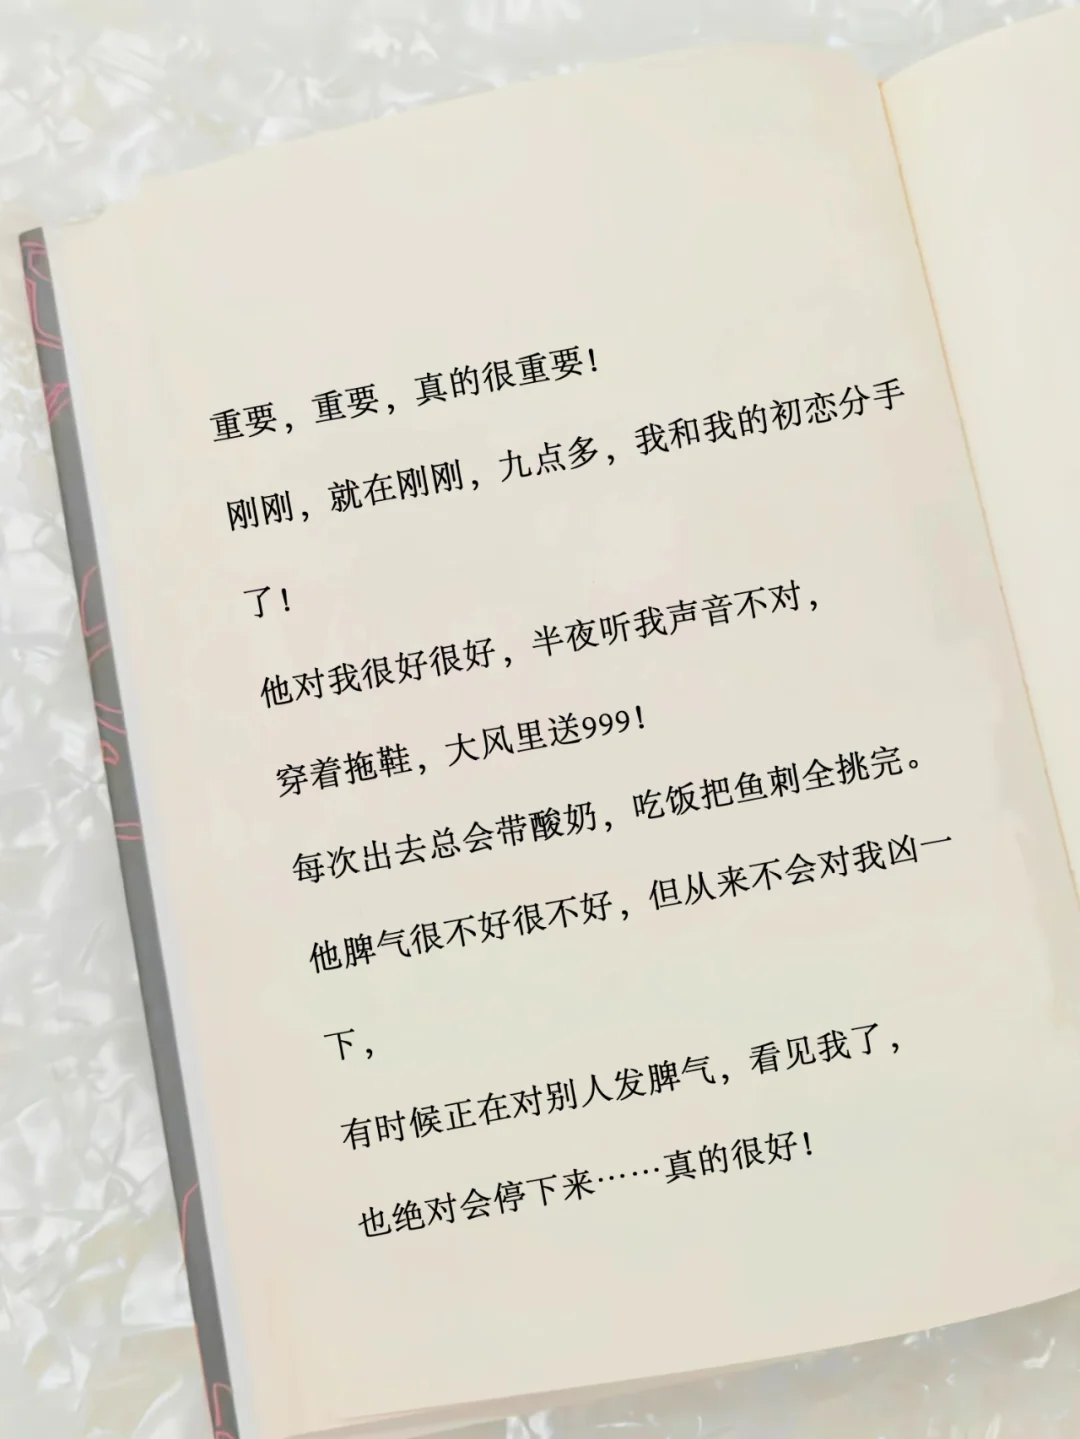 重要，重要，真的很重要！
刚刚，就在刚刚，九点多，我和我的初恋分手
了！
他对我很好很好，半夜听我声音不对，
穿着拖鞋，大风里送999！
每次出去总会带酸奶，吃饭把鱼刺全挑完。
他脾气很不好很不好，但从来不会对我凶一
下，
有时候正在对别人发脾气，看见我了，
也绝对会停下来……真的很好！